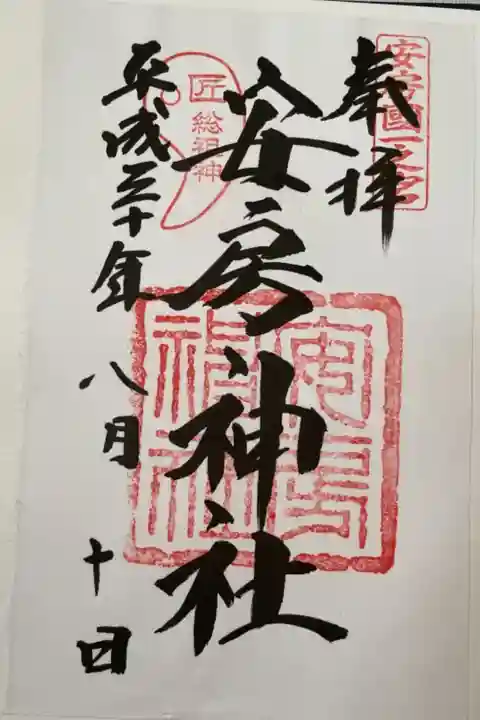 奉拝
安房國一之宮
安房神社
安房神社
匠
総祖神
平成三十年八月十日